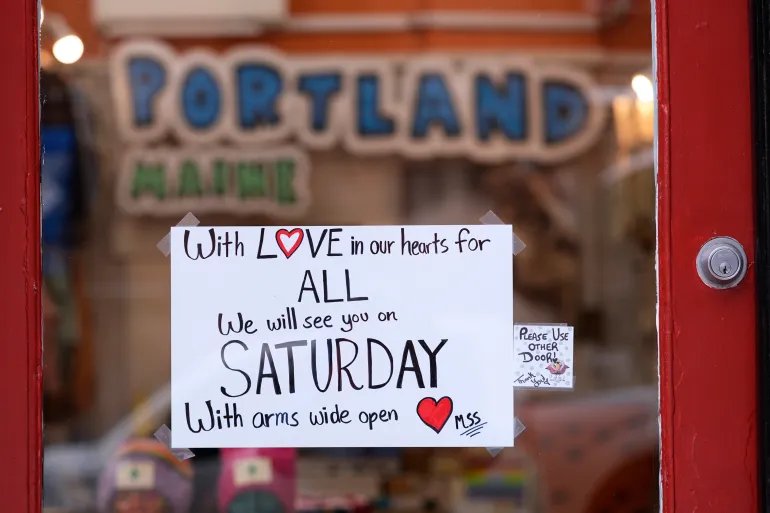 PORTLAND
MAINE
With LOVE in our hearts for
ALL
We will see you on
SATURDAY
With arms wide open
MSS
PLEASE USE
OTHER
DOOR!